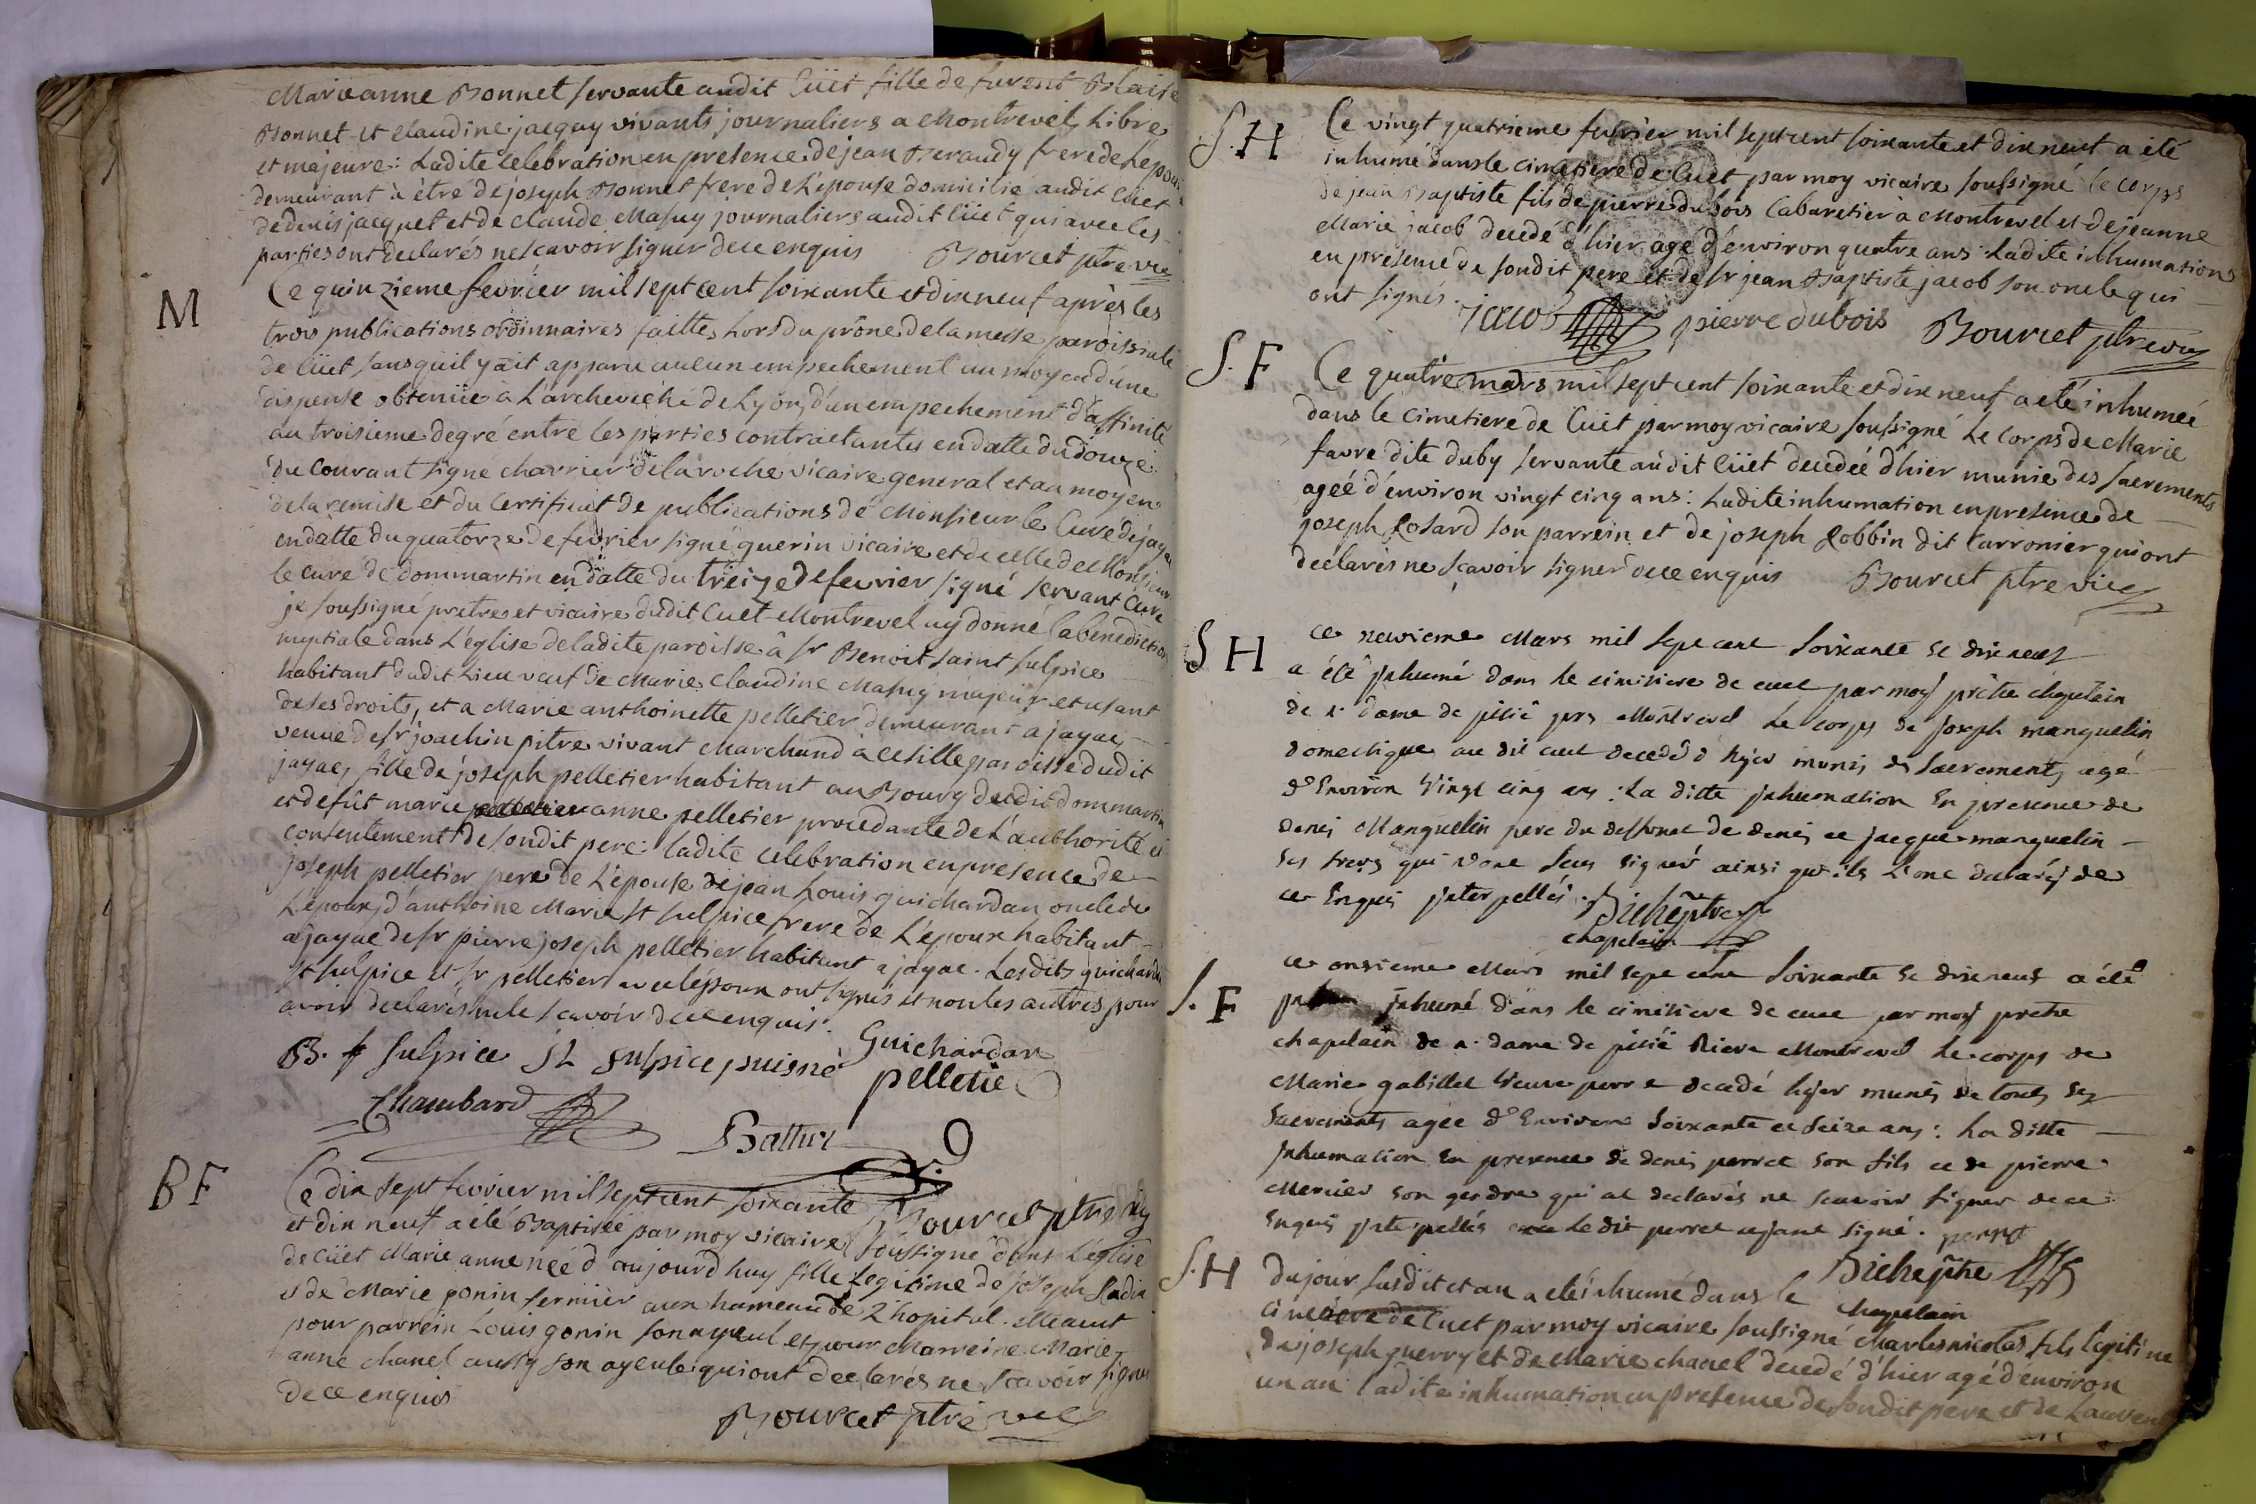 Marieanne Bonnet servante audit Cüet fille de furent Blaise
Bonnet et claudine jacquy vivants journaliers a Montrevel, Libre
et majeure : Ladite celebration en presence de jean Beraudy frere de L'epoux
demeurant à être de joseph Bonnet frere de L'epouse domicilié audit Cüet
de denis jacquet et de claude Masuy journaliers audit Cüet qui avec les
parties ont declarés ne scavoir signer de ce enquis Bourcet ptre vic
M
Ce quinzieme fevrier mil sept cent soixante et dix neuf après les
trois publications ordinnaires faittes Lors du prône de la messe paroissiale
de Cüet sans qu'il y ait apparu aucun empechement au moyen d'une
dispense obtenüe à L'archeveché de Lyon, d'un empechement d'affinité
au troisieme degré entre les parties contractantes en datte du douze
du Courant signé charrier de la roche vicaire general et au moyen
de la remise et du Certificat de publications de Monsieur le Curé de jayac
en datte du quatorze de fevrier signé querin vicaire et de celle de Monsieur
le curé de dommartin en datte du treize de fevrier signé servant Curé
je soussigné pretres et vicaire dudit Cuet-Montrevel ay donné la benediction
nuptiale dans L'église de ladite paroisse à sr Benoit saint sulpice
habitant dudit Lieu veuf de Marie Claudine Masuy majeur et usant
de ses droits, et a Marie anthoinette pelletier demeurant a jayac
veuve de sr joachin pitre vivant Marchand à cesille paroisse dudit
jayac, fille de joseph pelletier habitant au Bourg dudit dommartin
et de fût marie anne pelletier procedante de L'authorité et
consentement de sondit pere : ladite celebration en presence de
joseph pelletier pere de L'epouse de jean Louis guichardan oncle de
L'epoux, d'anthoine Marie st sulpice frere de L'epoux habitant
a jayac de sr pierre joseph pelletier habitant a jayac. Lesdits guichardan
st sulpice et sr pelletier avec lépoux ont signés et non les autres pour
avoir declarés ne le scavoir de ce enquis.
B. st sulpice st sulpice puisné Guichardan
pelletié
Chambard
Bourcet ptre vic
BF
Ce dix sept fevrier mil sept cent soixante
et dix neuf a été Baptisée par moy vicaire soussigné dans L'église
de Cüet Marie anne née d'aujourd'huy fille Legitime de joseph
et de Marie gonin fermier aux hameau de L'hopital. elle a eut
pour parrein Louis gonin son ayeul et pour Marreine Marie
anne chanel aussy son ayeule qui ont declarés ne scavoir signer
de ce enquis
Bourcet ptre vic
S. H
Ce vingt quatrieme fevrier mil sept cent soixante et dix neuf a été
inhumé dans le cimetiere de Cuet par moy vicaire soussigné le corps
de jean Baptiste fils de pierre dubois Cabaretier à Montrevel et de jeanne
Marie jacob decedé d'hier agé d'environ quatre ans : Ladite inhumation
en présence de sondit pere et de sr jean Baptiste jacob son oncle qui
ont signés. jacob pierre dubois Bourcet ptre vic
S. F
Ce quatre mars mil sept cent soixante et dix neuf a eté inhumeé
dans le cimetiere de Cüet par moy vicaire soussigné Le Corps de Marie
favre dite duby servante audit Cüet decedée d'hier munie des sacrements
ageé d'environ vingt cinq ans : Ladite inhumation en presence de
joseph Rosard son parrein et de joseph Robbin dit Carronier qui ont
declarés ne scavoir signer de ce enquis Bourcet ptre vic
S H
ce neuvieme Mars mil sept cent soixante et dix neuf
a été jnhumé dans le cimitiere de cuet par moy prêtre chapelain
de n. dame de pitié pres Montrevel Le corps de joseph manguelin
domestique au dit cuet decedé d'hyer munis des sacrements agé
d'Environ Vingt cinq ans : La ditte jnhumation En presence de
denis Manguelin pere du deffunct de denis et jacque manguelin
ses freres qui n'ont sceus signer ainsi qu'ils L'ont declarés de
ce Enquis jnterpellés. Biche ptre
chapelain
S. F
ce onsieme Mars mil sept cent soixante et dix neuf a été
jnhumé dans le cimitiere de cuet par moy pretre
chapelain de n. dame de pitié Riere Montrevel Le corps de
Marie gabillet Veuve perret decedé hyer munis de touts ses
sacrements agée d'Environ soixante et seize ans : La ditte
jnhumation En presence de denis perret son fils et de pierre
Mercier son gendre qui at declarés ne scavoir signer de ce
Enquis jnterpellés Le dit perret ayant signé. perret
Biche ptre
chapelain
S. H
Du jour susdit et an a eté inhumé dans le
cimetiere de Cuet par moy vicaire soussigné Charles nicolas fils legitime
de joseph guerry et de Marie chanel decedé d'hier agé d'environ
un an : ladite inhumation en presence de sondit pere et de Laurent